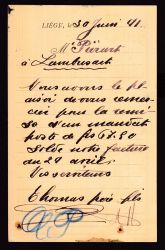 LIÉGE, le 30 Juin 91.
Mr Pirard
à Lambusart
Nous avons le pl
aisir de vous remer
cier pour la remi
se d'un mandat
poste de frs 67.80
solde notre facture
du 29 avril.
Vos serviteurs
Thomas père fils